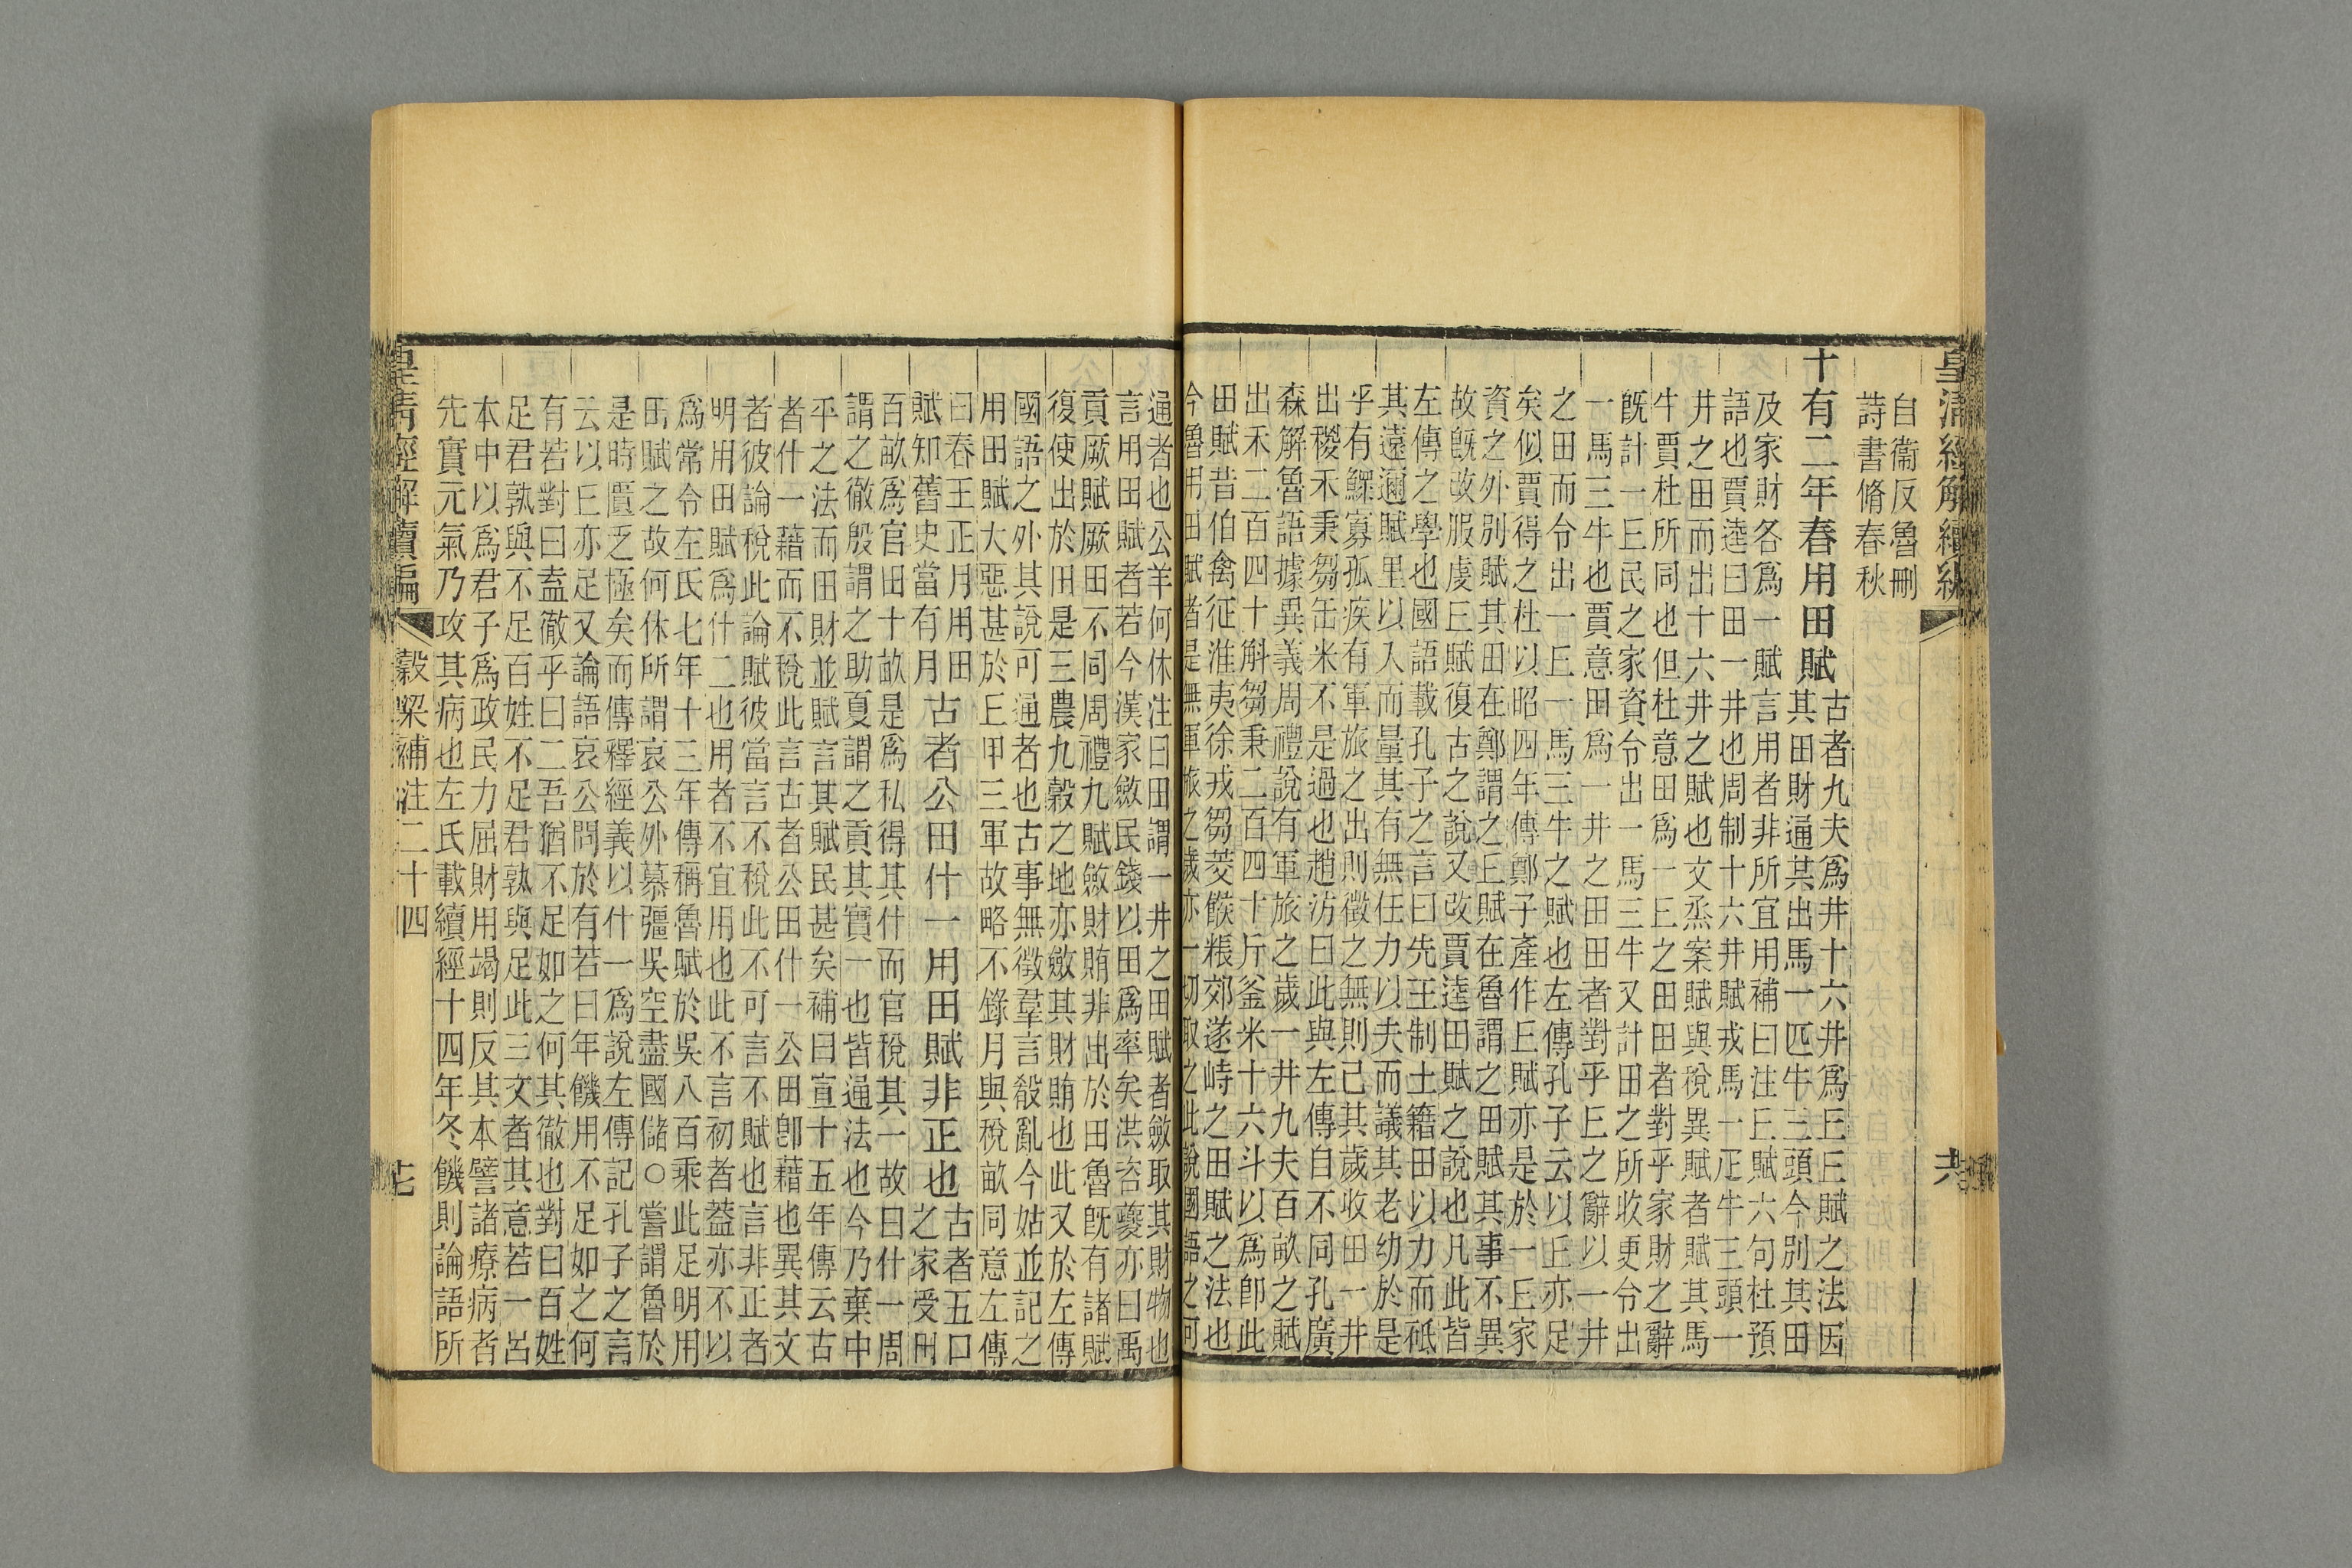 皇清經解續編
自衞反魯刪
詩書脩春秋
十有二年春用田賦
古者九夫爲井十六井爲丘丘賦之法因
其田財通其出馬一匹牛三頭今別其田
及家財各爲一賦言用者非所宜用補曰注丘賦六句杜預
語也賈逵曰田一井也周制十六井賦戎馬一匹牛三頭一
井之田而出十六井之賦也文烝案賦與稅異賦者賦其馬
牛賈杜所同也但杜意田爲一丘之田田者對乎家財之辭
旣計一丘民之家資令出一馬三牛又計田之所收更令出
一馬三牛也賈意田爲一井之田田者對乎丘之辭以一井
之田而令出一丘一馬三牛之賦也左傳孔子云以丘亦足
矣似賈得之杜以昭四年傳鄭子產作丘賦亦是於一丘家
資之外別賦其田在鄭謂之丘賦在魯謂之田賦其事不異
故旣改服虔丘賦復古之說又改賈逵田賦之說也凡此皆
左傳之學也國語載孔子之言曰先王制土籍田以力而砥
其遠邇賦里以入而量其有無任力以夫而議其老幼於是
乎有鰥寡孤疾有軍旅之出則徵之無則已其歲收田一井
出稷禾秉芻缶米不是過也趙汸曰此與左傳自不同孔廣
森解魯語據異義周禮說有軍旅之歲一井九夫百畝之賦
出禾二百四十斛芻秉二百四十斤釜米十六斗以爲卽此
田賦昔伯禽征淮夷徐戎芻茭餱粻郊遂峙之田賦之法也
今魯用田賦者是無軍旅之歲亦一切取之此說國語之何
通者也公羊何休注曰田謂一井之田賦者斂取其財物也
言用田賦者若今漢家斂民錢以田爲率矣洪咨夔亦曰禹
貢厥賦厥田不同周禮九賦斂財賄非出於田魯旣有諸賦
復使出於田是三農九穀之地亦斂其財賄也此又於左傳
國語之外其說可通者也古事無徵羣言殽亂今姑並記之
用田賦大惡甚於丘甲三軍故略不錄月與稅畝同意左傳
曰春王正月用田
賦知舊史當有月
古者公田什一用田賦非正也
古者五口
之家受田
百畝爲官田十畝是爲私得其什而官稅其一故曰什一周
謂之徹殷謂之助夏謂之貢其實一也皆通法也今乃棄中
平之法而田財並賦言其賦民甚矣補曰宣十五年傳云古
者什一藉而不稅此言古者公田什一公田卽藉也異其文
者彼論稅此論賦彼當言不稅此不可言不賦也言非正者
明用田賦爲什二也用者不宜用也此不言初者葢亦不以
爲常令左氏七年十三年傳稱魯賦於吳八百乘此足明用
田賦之故何休所謂哀公外慕彊吳空盡國儲○嘗謂魯於
是時匱乏極矣而傳釋經義以什一爲說左傳記孔子之言
云以丘亦足又論語哀公問於有若曰年饑用不足如之何
有若對曰盍徹乎曰二吾猶不足如之何其徹也對曰百姓
足君孰與不足百姓不足君孰與足此三文者其意若一呂
本中以爲君子爲政民力屈財用竭則反其本譬諸療病者
先實元氣乃攻其病也左氏載續經十四年冬饑則論語所
皇清經解續編
穀梁補注二十四